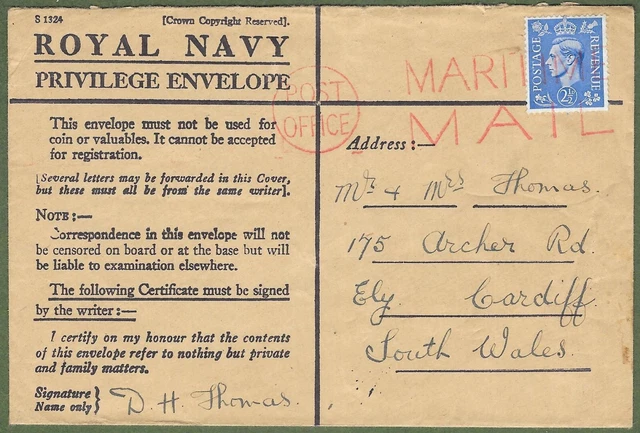 S 1324 [Crown Copyright Reserved].
ROYAL NAVY
PRIVILEGE ENVELOPE
This envelope must not be used for
coin or valuables. It cannot be accepted
for registration.
[Several letters may be forwarded in this Cover,
but these must all be from the same writer].
NOTE:—
Correspondence in this envelope will not
be censored on board or at the base but will
be liable to examination elsewhere.
The following Certificate must be signed
by the writer:—
I certify on my honour that the contents
of this envelope refer to nothing but private
and family matters.
Signature
Name only} D. H. Thomas.
POST
OFFICE
MARITIME
MAIL
POSTAGE
REVENUE
2½
Address:—
Mr & Mrs Thomas.
175 Archer Rd.
Ely. Cardiff.
South Wales.